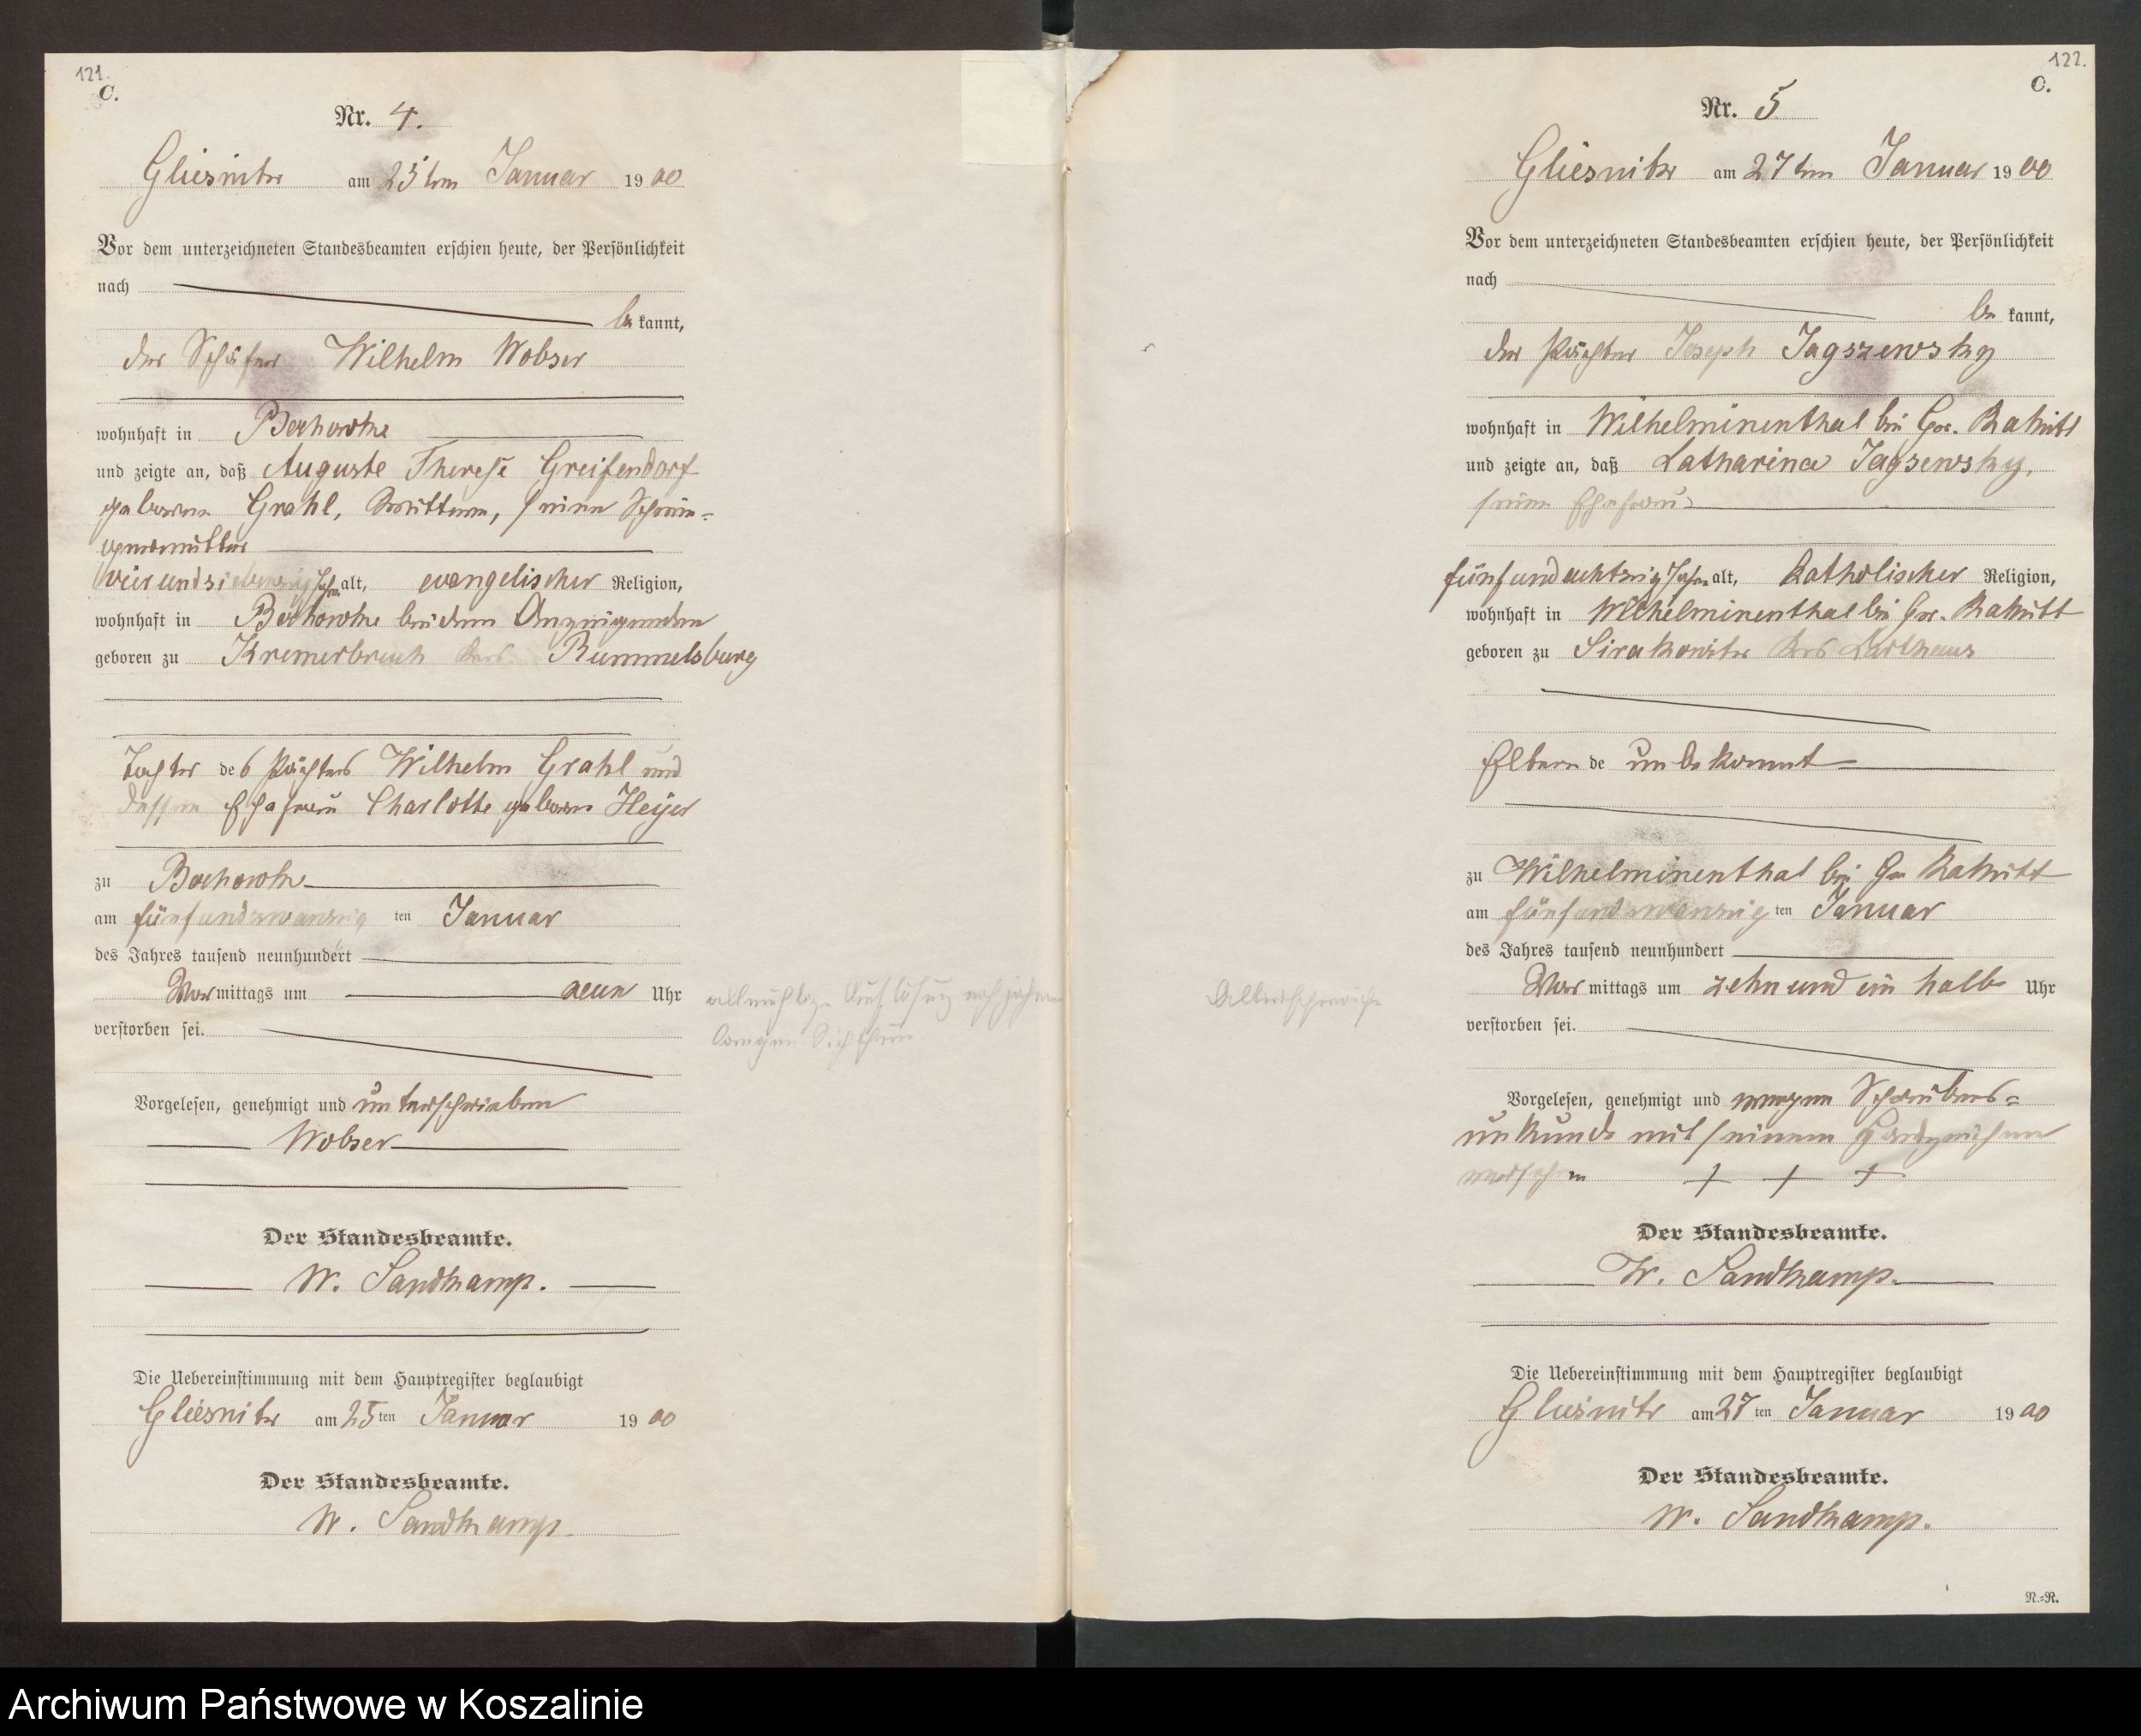 121.
C.
Nr. 4.
Gliesnitz am 25ten Januar 1900
Vor dem unterzeichneten Standesbeamten erschien heute, der Persönlichkeit
nach
be kannt,
der Schäfer Wilhelm Wobser
wohnhaft in Bochowke
und zeigte an, daß Auguste Therese Greifendorf
geborene Grahl, Wittwe, seine Schwie=
germutter
vierundsiebenzig Jahre alt, evangelischer Religion,
wohnhaft in Bochowke bei dem Anzeigenden
geboren zu Kremerbruch Kreis Rummelsburg
Tochter des Pächters Wilhelm Grahl und
dessen Ehefrau Charlotte geborne Heyer
zu Bochowke
am fünfundzwanzig ten Januar
des Jahres tausend neunhundert
Vor mittags um neun Uhr
verstorben sei.
allmähliche Auflösung nach jahre
langem Siechthum
Vorgelesen, genehmigt und unterschrieben
Wobser
Der Standesbeamte.
W. Sandkamp.
Die Uebereinstimmung mit dem Hauptregister beglaubigt
Gliesnitz am 25 ten Januar 1900
Der Standesbeamte.
W. Sandkamp.
122.
C.
Nr. 5
Gliesnitz am 27ten Januar 1900
Vor dem unterzeichneten Standesbeamten erschien heute, der Persönlichkeit
nach
be kannt,
der Pächter Joseph Jagszewsky
wohnhaft in Wilhelminenthal bei Gr. Rakitt
und zeigte an, daß Katharina Jagsewsky,
seine Ehefrau
fünfundachtzig Jahre alt, Katholischer Religion,
wohnhaft in Wilhelminenthal bei Gr. Rakitt
geboren zu Sirakowitz Kreis Karthaus
Eltern de unbekannt
zu Wilhelminenthal bei Gr Rakitt
am fünfundzwanzig ten Januar
des Jahres tausend neunhundert
Vor mittags um zehn und ein halb Uhr
verstorben sei.
Altersschwäche
Vorgelesen, genehmigt und wegen Schreibens=
unkunde mit seinem Handzeichen
versehen + + +
Der Standesbeamte.
W. Sandkamp.
Die Uebereinstimmung mit dem Hauptregister beglaubigt
Gliesnitz am 27 ten Januar 1900
Der Standesbeamte.
W. Sandkamp.
N.=R.
Archiwum Państwowe w Koszalinie